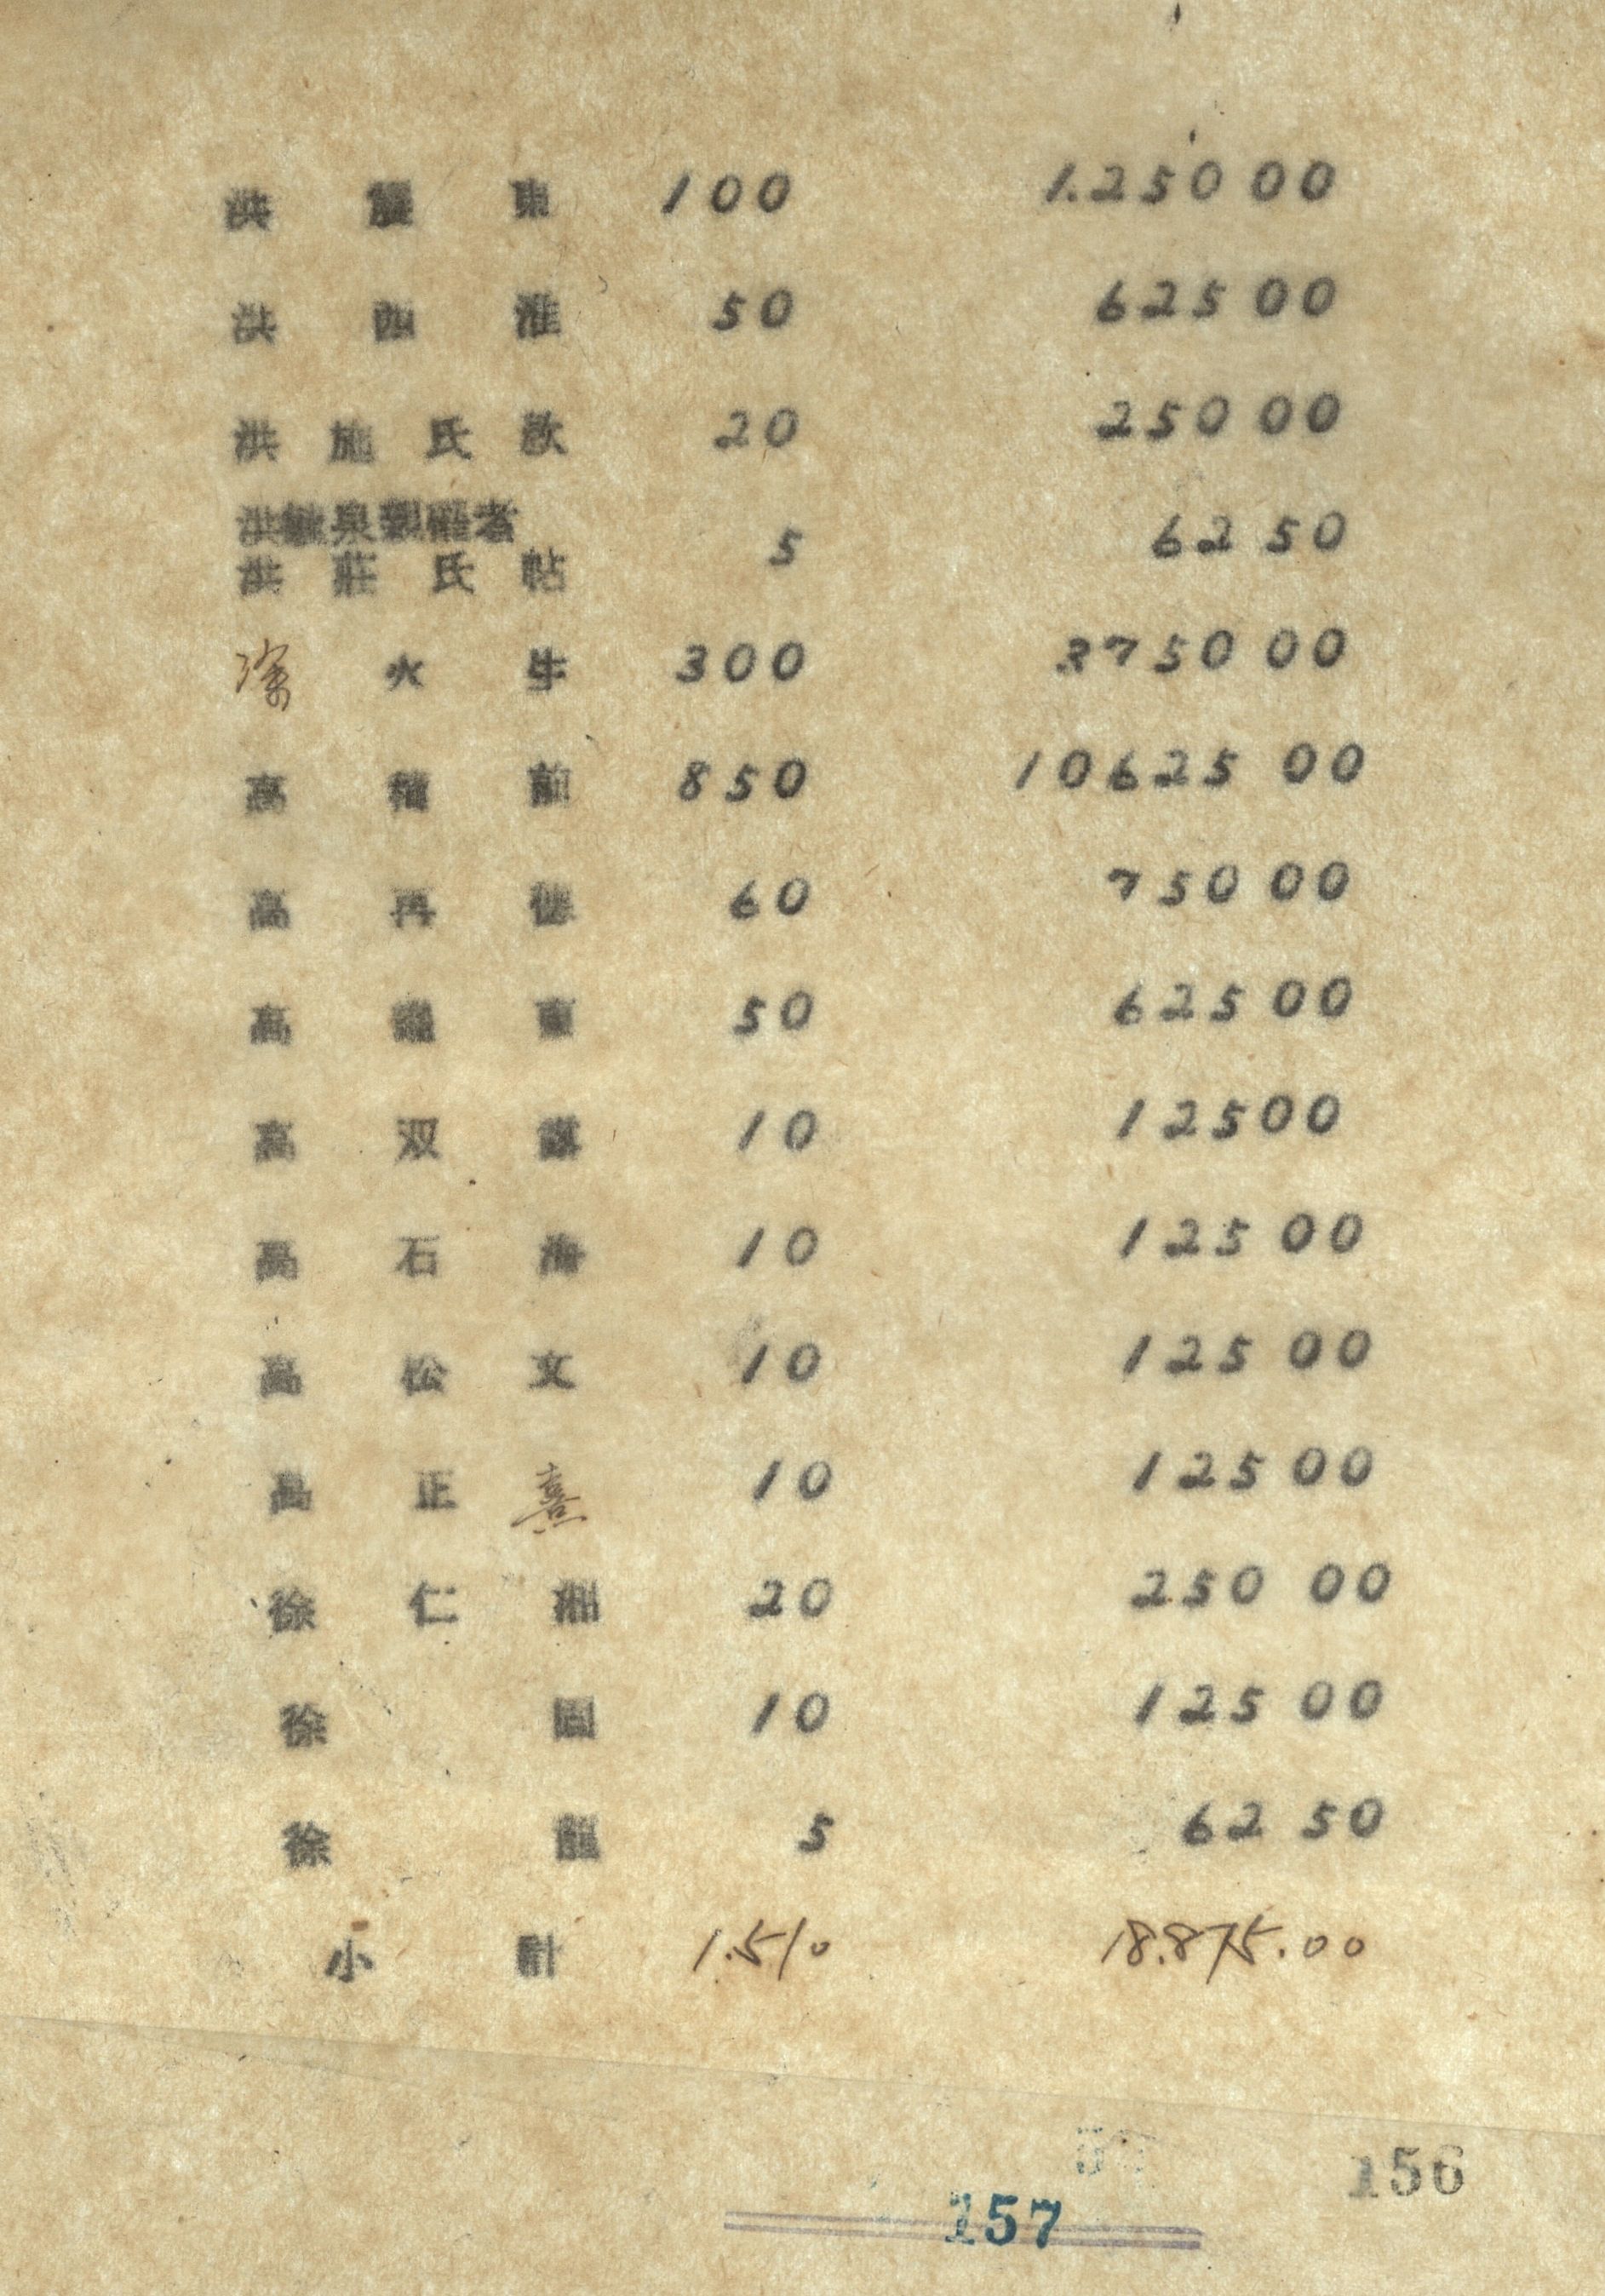 洪 東 100 1.250 00
洪 西 淮 50 625 00
洪 施 氏 欵 20 250 00
洪 泉親權者
洪 莊 氏 帖 5 62 50
火 生 300 3750 00
高 850 10625 00
高 再 德 60 750 00
高 50 625 00
高 双 10 125 00
高 石 海 10 125 00
高 松 文 10 125 00
高 正 熹 10 125 00
徐 仁 湘 20 250 00
徐 10 125 00
徐 龍 5 62 50
小 計 1.510 18.875.00
156
157